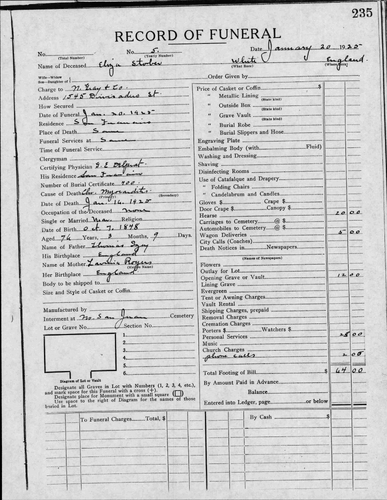 235
RECORD OF FUNERAL
No. No. 5 Date January 20 1925
(Yearly Number)
Name of Deceased Eliza Stober White England
(What Race) (Where Born)
Charge to N. Gray & Co. Order Given by
Address 1545 Divisadero St. Price of Casket or Coffin $
How Secured " Metallic Lining
Date of Funeral Jan. 20. 1925 " Outside Box
Residence San Francisco " Grave Vault
Place of Death Same " Burial Robe
Funeral Services at Same " Burial Slippers and Hose
Time of Funeral Service Engraving Plate
Clergyman Embalming Body (with Fluid)
Certifying Physician Washing and Dressing
His Residence San Francisco Shaving
Number of Burial Certificate 400 Disinfecting Rooms
Cause of Death Chr. Myocarditis Use of Catafalque and Drapery
Date of Death Jan. 16. 1925 " Folding Chairs
Occupation of the Deceased none " Candelabrum and Candles
Single or Married Religion Gloves $ Crape $
Date of Birth Oct. 7, Door Crape $ Canopy $
Aged 76 Years, 3 Months, 9 Days. Hearse 20 00
Name of Father Thomas Carriages to Cemetery @ $
His Birthplace England Automobiles to Cemetery @ $
Name of Mother Lavinia Rogers Wagon Deliveries 5 00
Her Birthplace England City Calls (Coaches)
Body to be shipped to Death Notices in Newspapers
Size and Style of Casket or Coffin (Names of Newspapers)
Flowers
Outlay for Lot
Opening Grave or Vault 12 00
Lining Grave
Evergreen
Tent or Awning Charges
Vault Rental
Manufactured by Shipping Charges, prepaid
Interment in Mt. San Juan Cemetery Removal Charges
Lot or Grave No. Section No. Cremation Charges
1 Porters $ Watchers $
2 Personal Services 25 00
3 Music
4 Church Charges
5 phone calls 2 00
6 Total Footing of Bill $ 64 00
Diagram of Lot or Vault By Amount Paid in Advance
Designate all Graves in Lot with Numbers (1, 2, 3, 4, etc.), Balance
and mark space for this Funeral with a cross (+). Entered into Ledger, page or below.
Designate place for Monument with a small square (□)
Use space to right of Diagram for the names of those
buried in Lot.
To Funeral Charges Total, $ By Cash $